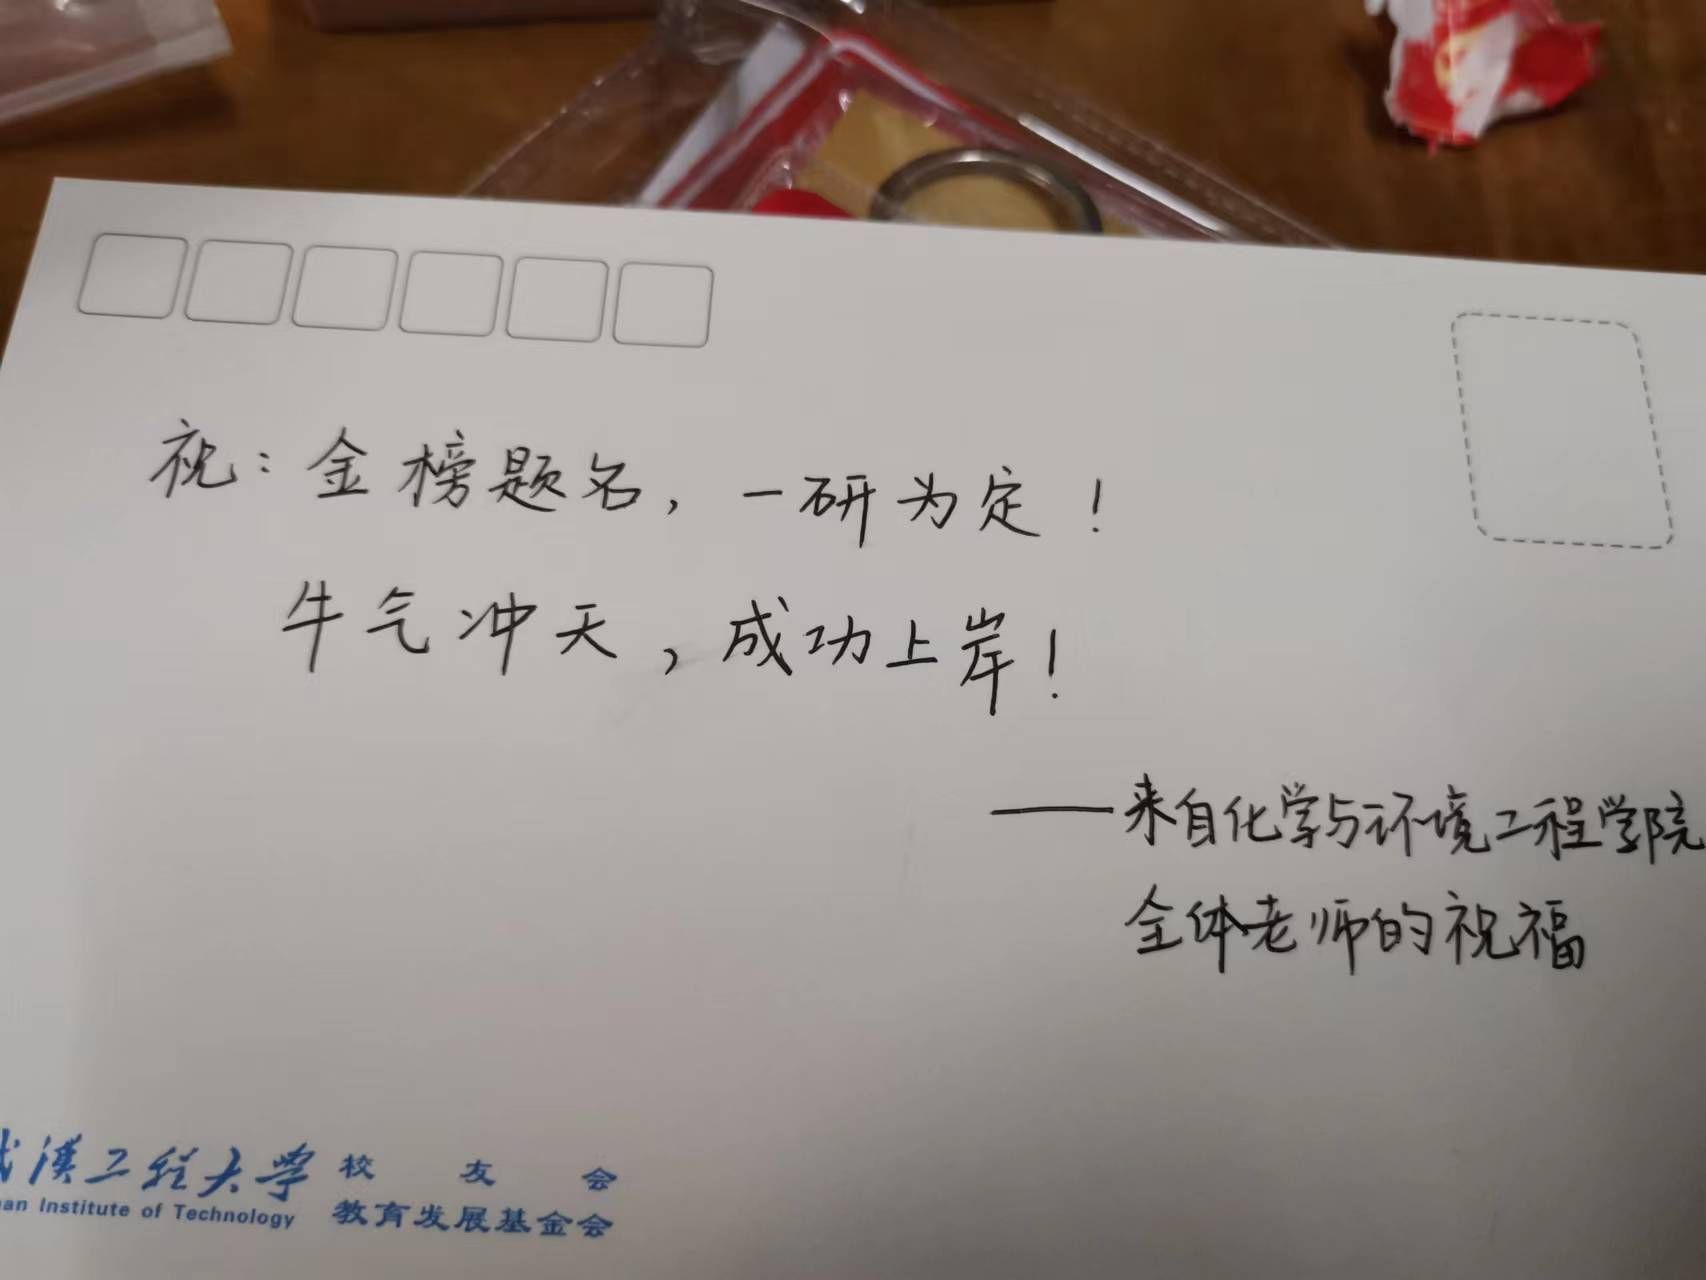 祝：金榜题名，一研为定！
牛气冲天，成功上岸！
——来自化学与环境工程学院
全体老师的祝福
武汉工程大学 校友会
an Institute of Technology 教育发展基金会